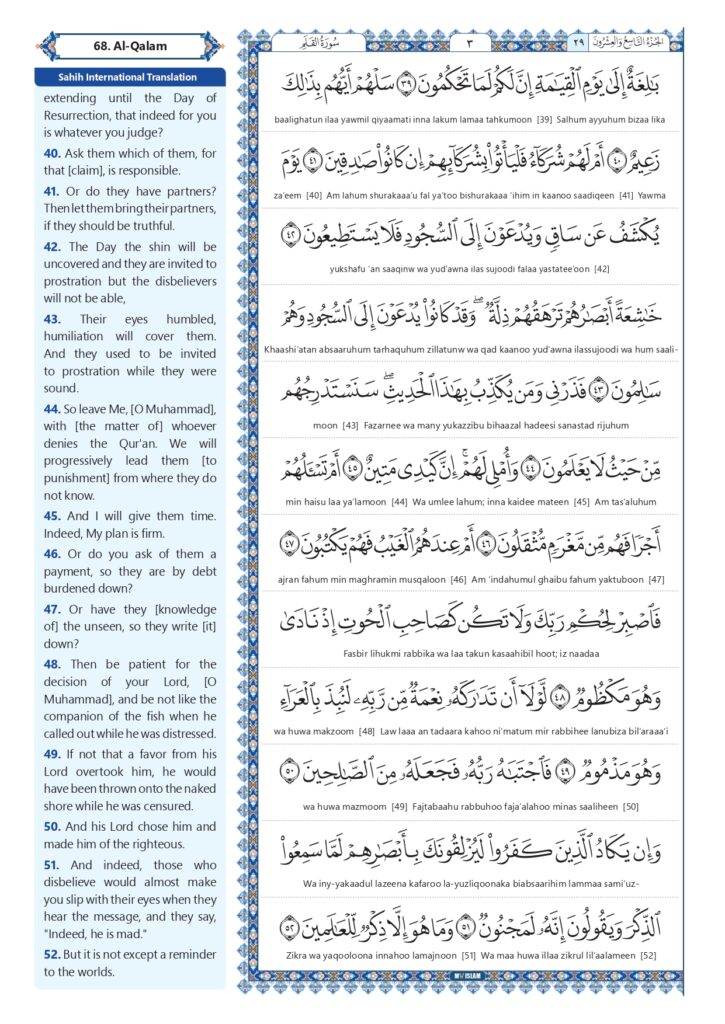 68. Al-Qalam
Sahih International Translation
extending until the Day of
Resurrection, that indeed for you
is whatever you judge?
40. Ask them which of them, for
that [claim], is responsible.
41. Or do they have partners?
Then let them bring their partners,
if they should be truthful.
42. The Day the shin will be
uncovered and they are invited to
prostration but the disbelievers
will not be able,
43. Their eyes humbled,
humiliation will cover them.
And they used to be invited
to prostration while they were
sound.
44. So leave Me, [O Muhammad],
with [the matter of] whoever
denies the Qur'an. We will
progressively lead them [to
punishment] from where they do
not know.
45. And I will give them time.
Indeed, My plan is firm.
46. Or do you ask of them a
payment, so they are by debt
burdened down?
47. Or have they [knowledge
of] the unseen, so they write [it]
down?
48. Then be patient for the
decision of your Lord, [O
Muhammad], and be not like the
companion of the fish when he
called out while he was distressed.
49. If not that a favor from his
Lord overtook him, he would
have been thrown onto the naked
shore while he was censured.
50. And his Lord chose him and
made him of the righteous.
51. And indeed, those who
disbelieve would almost make
you slip with their eyes when they
hear the message, and they say,
"Indeed, he is mad."
52. But it is not except a reminder
to the worlds.
الجزء التاسع والعشرون ٢٩
٣
سورة القلم
بَٰلِغَةٌ إِلَىٰ يَوْمِ ٱلْقِيَٰمَةِ إِنَّ لَكُمْ لَمَا تَحْكُمُونَ ٣٩ سَلْهُمْ أَيُّهُم بِذَٰلِكَ
baalighatun ilaa yawmil qiyaamati inna lakum lamaa tahkumoon [39] Salhum ayyuhum bizaa lika
زَعِيمٌ ٤٠ أَمْ لَهُمْ شُرَكَآءُ فَلْيَأْتُوا۟ بِشُرَكَآئِهِمْ إِن كَانُوا۟ صَٰدِقِينَ ٤١ يَوْمَ
za'eem [40] Am lahum shurakaaa'u fal ya'too bishurakaaa 'ihim in kaanoo saadiqeen [41] Yawma
يُكْشَفُ عَن سَاقٍ وَيُدْعَوْنَ إِلَى ٱلسُّجُودِ فَلَا يَسْتَطِيعُونَ ٤٢
yukshafu 'an saaqinw wa yud'awna ilas sujoodi falaa yastatee'oon [42]
خَٰشِعَةً أَبْصَٰرُهُمْ تَرْهَقُهُمْ ذِلَّةٌ ۖ وَقَدْ كَانُوا۟ يُدْعَوْنَ إِلَى ٱلسُّجُودِ وَهُمْ
Khaashi'atan absaaruhum tarhaquhum zillatunw wa qad kaanoo yud'awna ilassujoodi wa hum saali-
سَٰلِمُونَ ٤٣ فَذَرْنِى وَمَن يُكَذِّبُ بِهَٰذَا ٱلْحَدِيثِ ۖ سَنَسْتَدْرِجُهُم
moon [43] Fazarnee wa many yukazzibu bihaazal hadeesi sanastad rijuhum
مِّنْ حَيْثُ لَا يَعْلَمُونَ ٤٤ وَأُمْلِى لَهُمْ ۚ إِنَّ كَيْدِى مَتِينٌ ٤٥ أَمْ تَسْـَٔلُهُمْ
min haisu laa ya'lamoon [44] Wa umlee lahum; inna kaidee mateen [45] Am tas'aluhum
أَجْرًا فَهُم مِّن مَّغْرَمٍ مُّثْقَلُونَ ٤٦ أَمْ عِندَهُمُ ٱلْغَيْبُ فَهُمْ يَكْتُبُونَ ٤٧
ajran fahum min maghramin musqaloon [46] Am 'indahumul ghaibu fahum yaktuboon [47]
فَٱصْبِرْ لِحُكْمِ رَبِّكَ وَلَا تَكُن كَصَاحِبِ ٱلْحُوتِ إِذْ نَادَىٰ
Fasbir lihukmi rabbika wa laa takun kasaahibil hoot; iz naadaa
وَهُوَ مَكْظُومٌ ٤٨ لَّوْلَآ أَن تَدَٰرَكَهُۥ نِعْمَةٌ مِّن رَّبِّهِۦ لَنُبِذَ بِٱلْعَرَآءِ
wa huwa makzoom [48] Law laaa an tadaara kahoo ni'matum mir rabbihee lanubiza bil'araaa'i
وَهُوَ مَذْمُومٌ ٤٩ فَٱجْتَبَٰهُ رَبُّهُۥ فَجَعَلَهُۥ مِنَ ٱلصَّٰلِحِينَ ٥٠
wa huwa mazmoom [49] Fajtabaahu rabbuhoo faja'alahoo minas saaliheen [50]
وَإِن يَكَادُ ٱلَّذِينَ كَفَرُوا۟ لَيُزْلِقُونَكَ بِأَبْصَٰرِهِمْ لَمَّا سَمِعُوا۟
Wa iny-yakaadul lazeena kafaroo la-yuzliqoonaka biabsaarihim lammaa sami'uz-
ٱلذِّكْرَ وَيَقُولُونَ إِنَّهُۥ لَمَجْنُونٌ ٥١ وَمَا هُوَ إِلَّا ذِكْرٌ لِّلْعَٰلَمِينَ ٥٢
Zikra wa yaqooloona innahoo lamajnoon [51] Wa maa huwa illaa zikrul lil'aalameen [52]
MY ISLAM